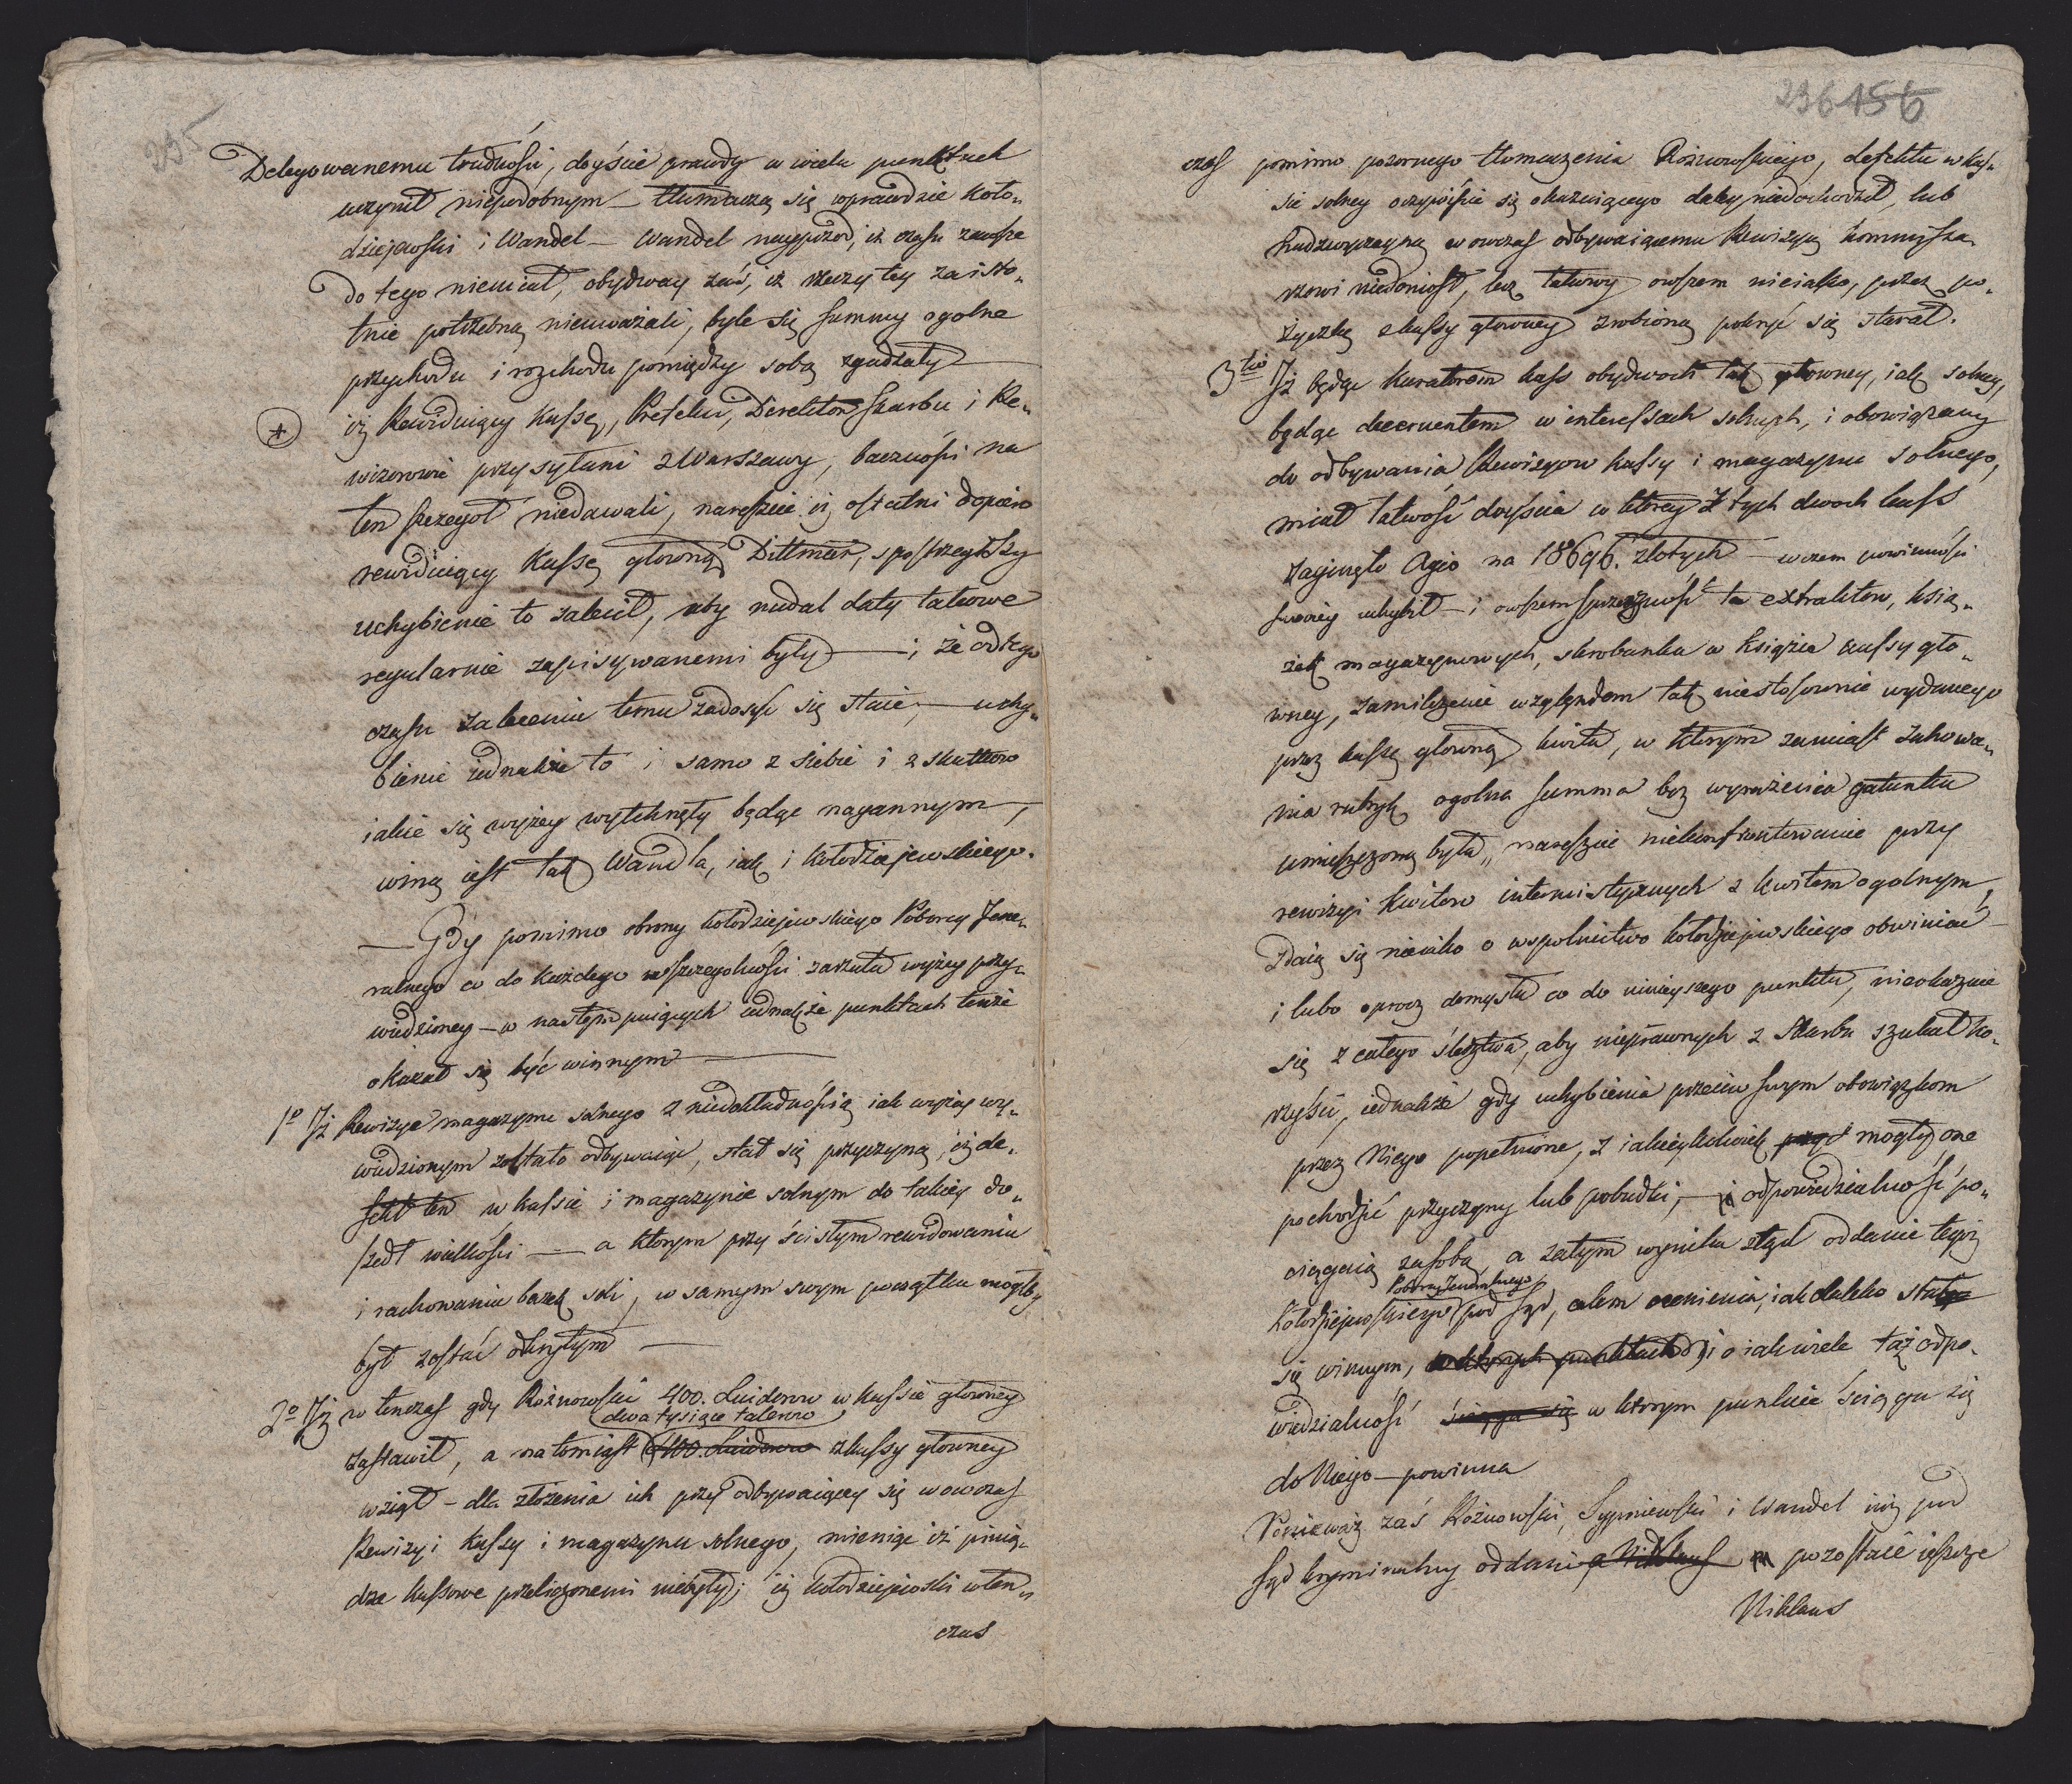 295
Delegowanemu trudności, doyście prawdy w wielu punktach
uczynił niepodobnym — tłumaczą się wprawdzie Koło„
dziejewski i Wandel — Wandel nayprzod, iż czasu zawsze
do tego niemiał, obydway zaś, iż rzeczy tey za isto„
tnie potrzebną nieuważali, byle się summy ogolne
przychodu i rozchodu pomiędzy sobą zgadzały —
iż Rewiduiący Kassę, Prefekci, Dyrektor skarbu i Re„
wizorowie przysyłani z Warszawy, baczności na
ten szczegoł niedawali, nareszcie iż ostatni dopiero
rewiduiący Kassę głowną Dittmar, spostrzegłszy
uchybienie to zalecił, aby nadal daty takowe
regularnie zapisywanemi były — i że odtego
czasu zaleceniu temu zadosyć się staie, — uchy„
bienie iednakże to i samo z siebie i z skutkow
iakie się wyżey wytchnęły będąc nagannym,
winą iest tak Wandla, iak i Kołodziejewskiego.
— Gdy pomimo obrony Kołodziejewskiego Poborcy Jene„
ralnego co do każdego w szczegolności zarzutu wyżey przy„
wiedzioney — w następuiących iednakże punktach tenże
okazał się być winnym —
1o Iż Rewizye magazynu solnego z niedokładnością iak wyżey wy„
wiedzionym zostało odbywaiąc, stał się przyczyną, iż de„
fekt ten w kassie i magazynie solnym do takiey do„
szedł wielkości — a ktorym przy ścisłym rewidowaniu
i rachowaniu beczek soli, w samym swym początku mogłby
był zostać odkrytym —
2o Iż w tenczas gdy Rożnowski 400. Luidorow w kassie głowney
dwa tysiące talerow
zastawił, a natomiast 400. Luidorow z kassy głowney
wziął — dla złożenia ich przy odbywaiącey się wowczas
Rewizyi kassy i magazynu solnego, mieniąc iż pienią„
dze kassowe przeliczonemi niebyły; iż Kołodziejewski wten„
czas
296 456
czas pomimo pozornego tłomaczenia Rożnowskiego, defektu w kas„
sie solney oczywiście się okazuiącego daley niedochodził, lub
Nadzwyczayną wowczas odbywaiącemu Rewizyą kommissa„
rzowi niedoniosł, lecz takowy owszem nieiako, przez po„
życzkę z kassy głowney zrobioną pokryć się starał.
3tio Iż będąc Kuratorem kass obydwoch tak głowney, iak solney,
będąc decernentem w interessach solnych, i obowiązany
do odbywania Rewizyow kassy i magazynu solnego,
miał łatwość doyścia w ktorey z tych dwoch kass
zaginęło Agio na 18696. złotych — wczem powinności
swoiey uchybił — i owszem sprzeczność ta extraktow, ksią„
żek magazynowych, skrobanka w książce kassy gło„
wney, zamilczenie względem tak niestosownie wydanego
przez kassę głowną kwitu, w ktorym zamiast zachowa„
nia rubryk ogolna summa bez wyrażenia gatunku
umieszczoną była, nareszcie niekonfrontowanie przy
rewizyi Kwitow interimistycznych z kwitem ogolnym,
Zdaią się nieiako o wspolnictwo Kołodziejewskiego obwiniać
i lubo oprocz domysłu co do ninieyszego punktu, nieokazuie
się z całego śledztwa, aby nieprawnych z Skarbu szukał ko„
rzyści, iednakże gdy uchybienia przeciw swym obowiązkom
przez Niego popełnione, z iakieykolwiek mogły one
pochodzić przyczyny lub pobudki, — odpowiedzialność po„
ciągaią za sobą, a zatym wynika ztąd oddanie tegoż
Poborcy Jeneralnego
Kołodziejewskiego pod sąd, celem ocenienia, iak daleko stał
się winnym, w ktorych punktach i o iak wiele taż odpo„
wiedzialność ściąga się w ktorym punkcie ściągać się
do Niego — powinna
Ponieważ zaś Rożnowski, Sypniewski i Wandel iuż pod
sąd kryminalny oddani a Niklaus pozostaie ieszcze
Niklaus